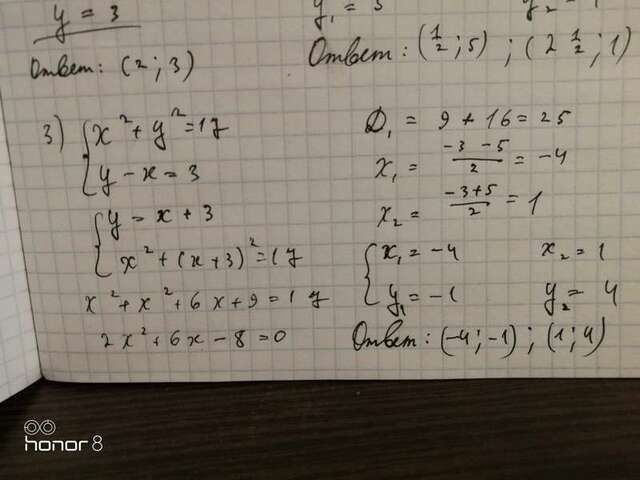 y = 3
Ответ: (2 ; 3)
y₁ = 5
Ответ: (1/2 ; 5) ; (2 1/2 ; 1)
3) { x² + y² = 17
y - x = 3
{ y = x + 3
x² + (x + 3)² = 17
x² + x² + 6x + 9 = 17
2x² + 6x - 8 = 0
D₁ = 9 + 16 = 25
x₁ = (-3 - 5)/2 = -4
x₂ = (-3 + 5)/2 = 1
{ x₁ = -4 x₂ = 1
y₁ = -1 y₂ = 4
Ответ: (-4 ; -1) ; (1 ; 4)
honor 8